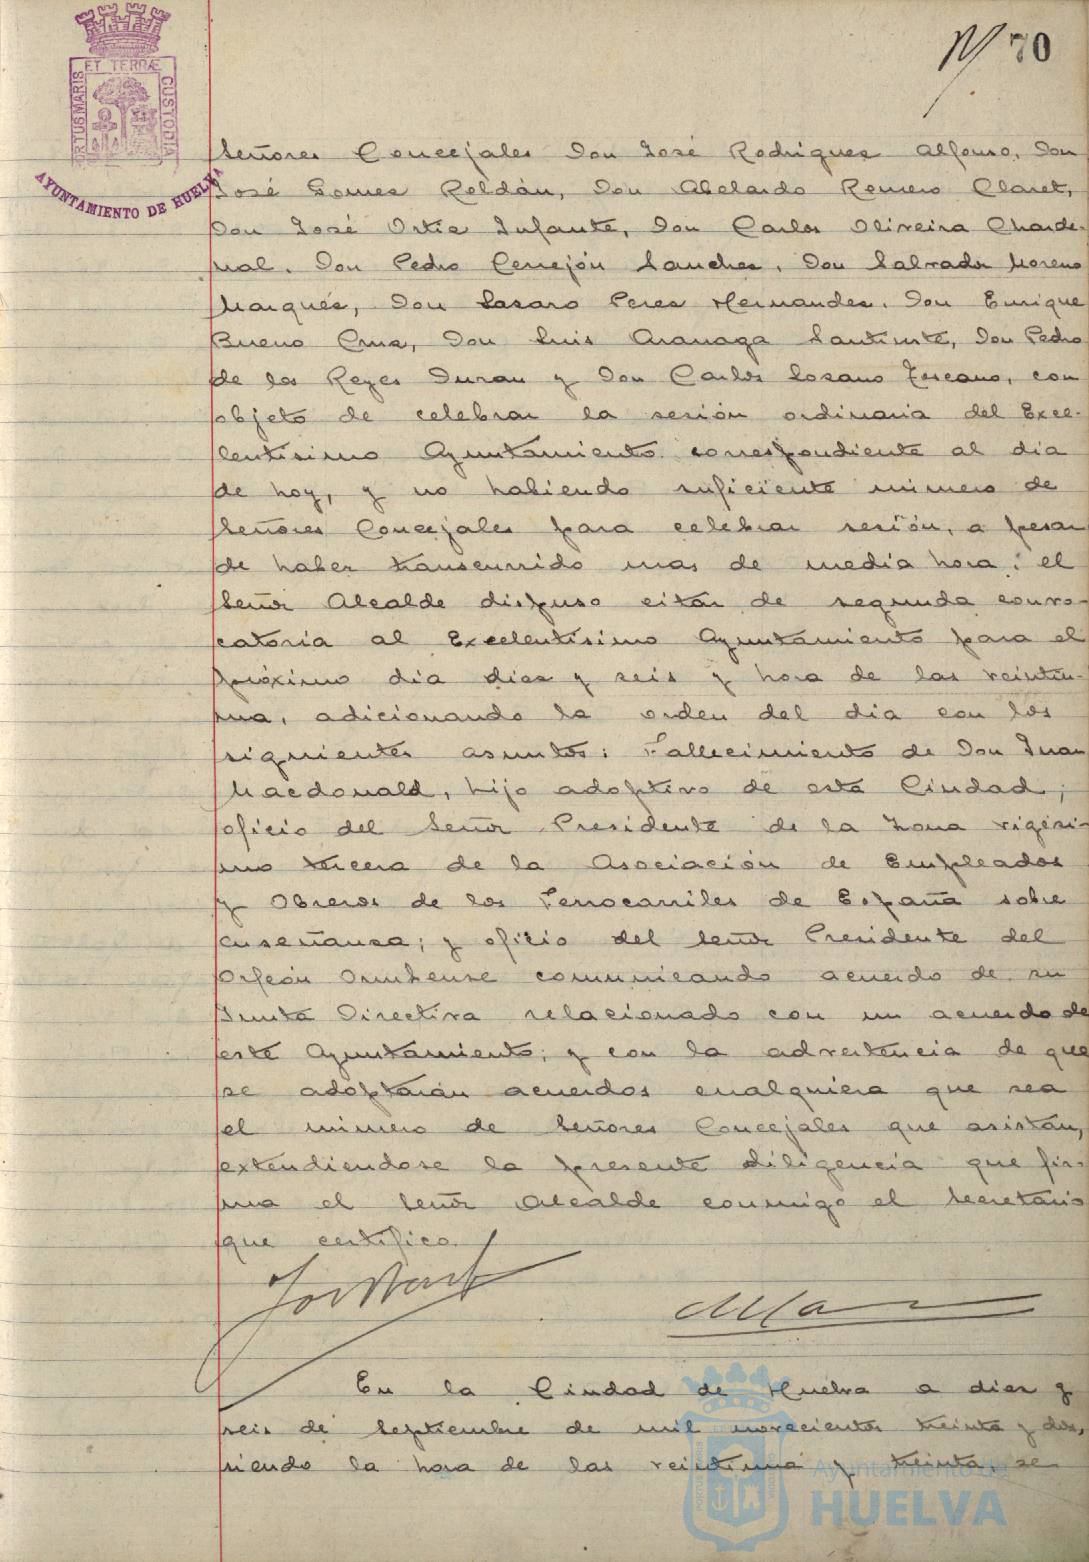 ET TERRÆ
PORTUS MARIS
CUSTODIA
AYUNTAMIENTO DE HUELVA
70
Señores Concejales Don José Rodriguez Alfonso, Don
José Gomez Roldán, Don Abelardo Romero Claret,
Don José Ortiz Infante, Don Carlos Oliveira Charde-
nal, Don Pedro Cerrejón Sanchez, Don Salvador Moreno
Marqués, Don Lazaro Perez Hernandez, Don Enrique
Bueno Cruz, Don Luis Aranaga Santiuste, Don Pedro
de los Reyes Duran y Don Carlos Lozano Toscano, con
objeto de celebrar la sesión ordinaria del Exce-
lentisimo Ayuntamiento correspondiente al dia
de hoy, y no habiendo suficiente número de
Señores Concejales para celebrar sesión, a pesar
de haber transcurrido mas de media hora; el
Señor Alcalde dispuso citar de segunda convo-
catoria al Excelentisimo Ayuntamiento para el
próximo dia diez y seis y hora de las veintiu-
na, adicionando la orden del dia con los
siguientes asuntos: Fallecimiento de Don Juan
Macdonald, hijo adoptivo de esta Ciudad;
oficio del Señor Presidente de la Zona vigesi-
mo tercera de la Asociación de Empleados
y Obreros de los Ferrocarriles de España sobre
enseñanza; y oficio del Señor Presidente del
Orfeón Onubense comunicando acuerdo de su
Junta Directiva relacionado con un acuerdo de
este Ayuntamiento; y con la advertencia de que
se adoptarán acuerdos cualquiera que sea
el número de Señores Concejales que asistan,
extendiendose la presente diligencia que fir-
ma el Señor Alcalde conmigo el Secretario
que certifico.
En la Ciudad de Huelva a diez y
seis de Septiembre de mil novecientos treinta y dos,
siendo la hora de las veintiuna y treinta, se
Ayuntamiento de
HUELVA